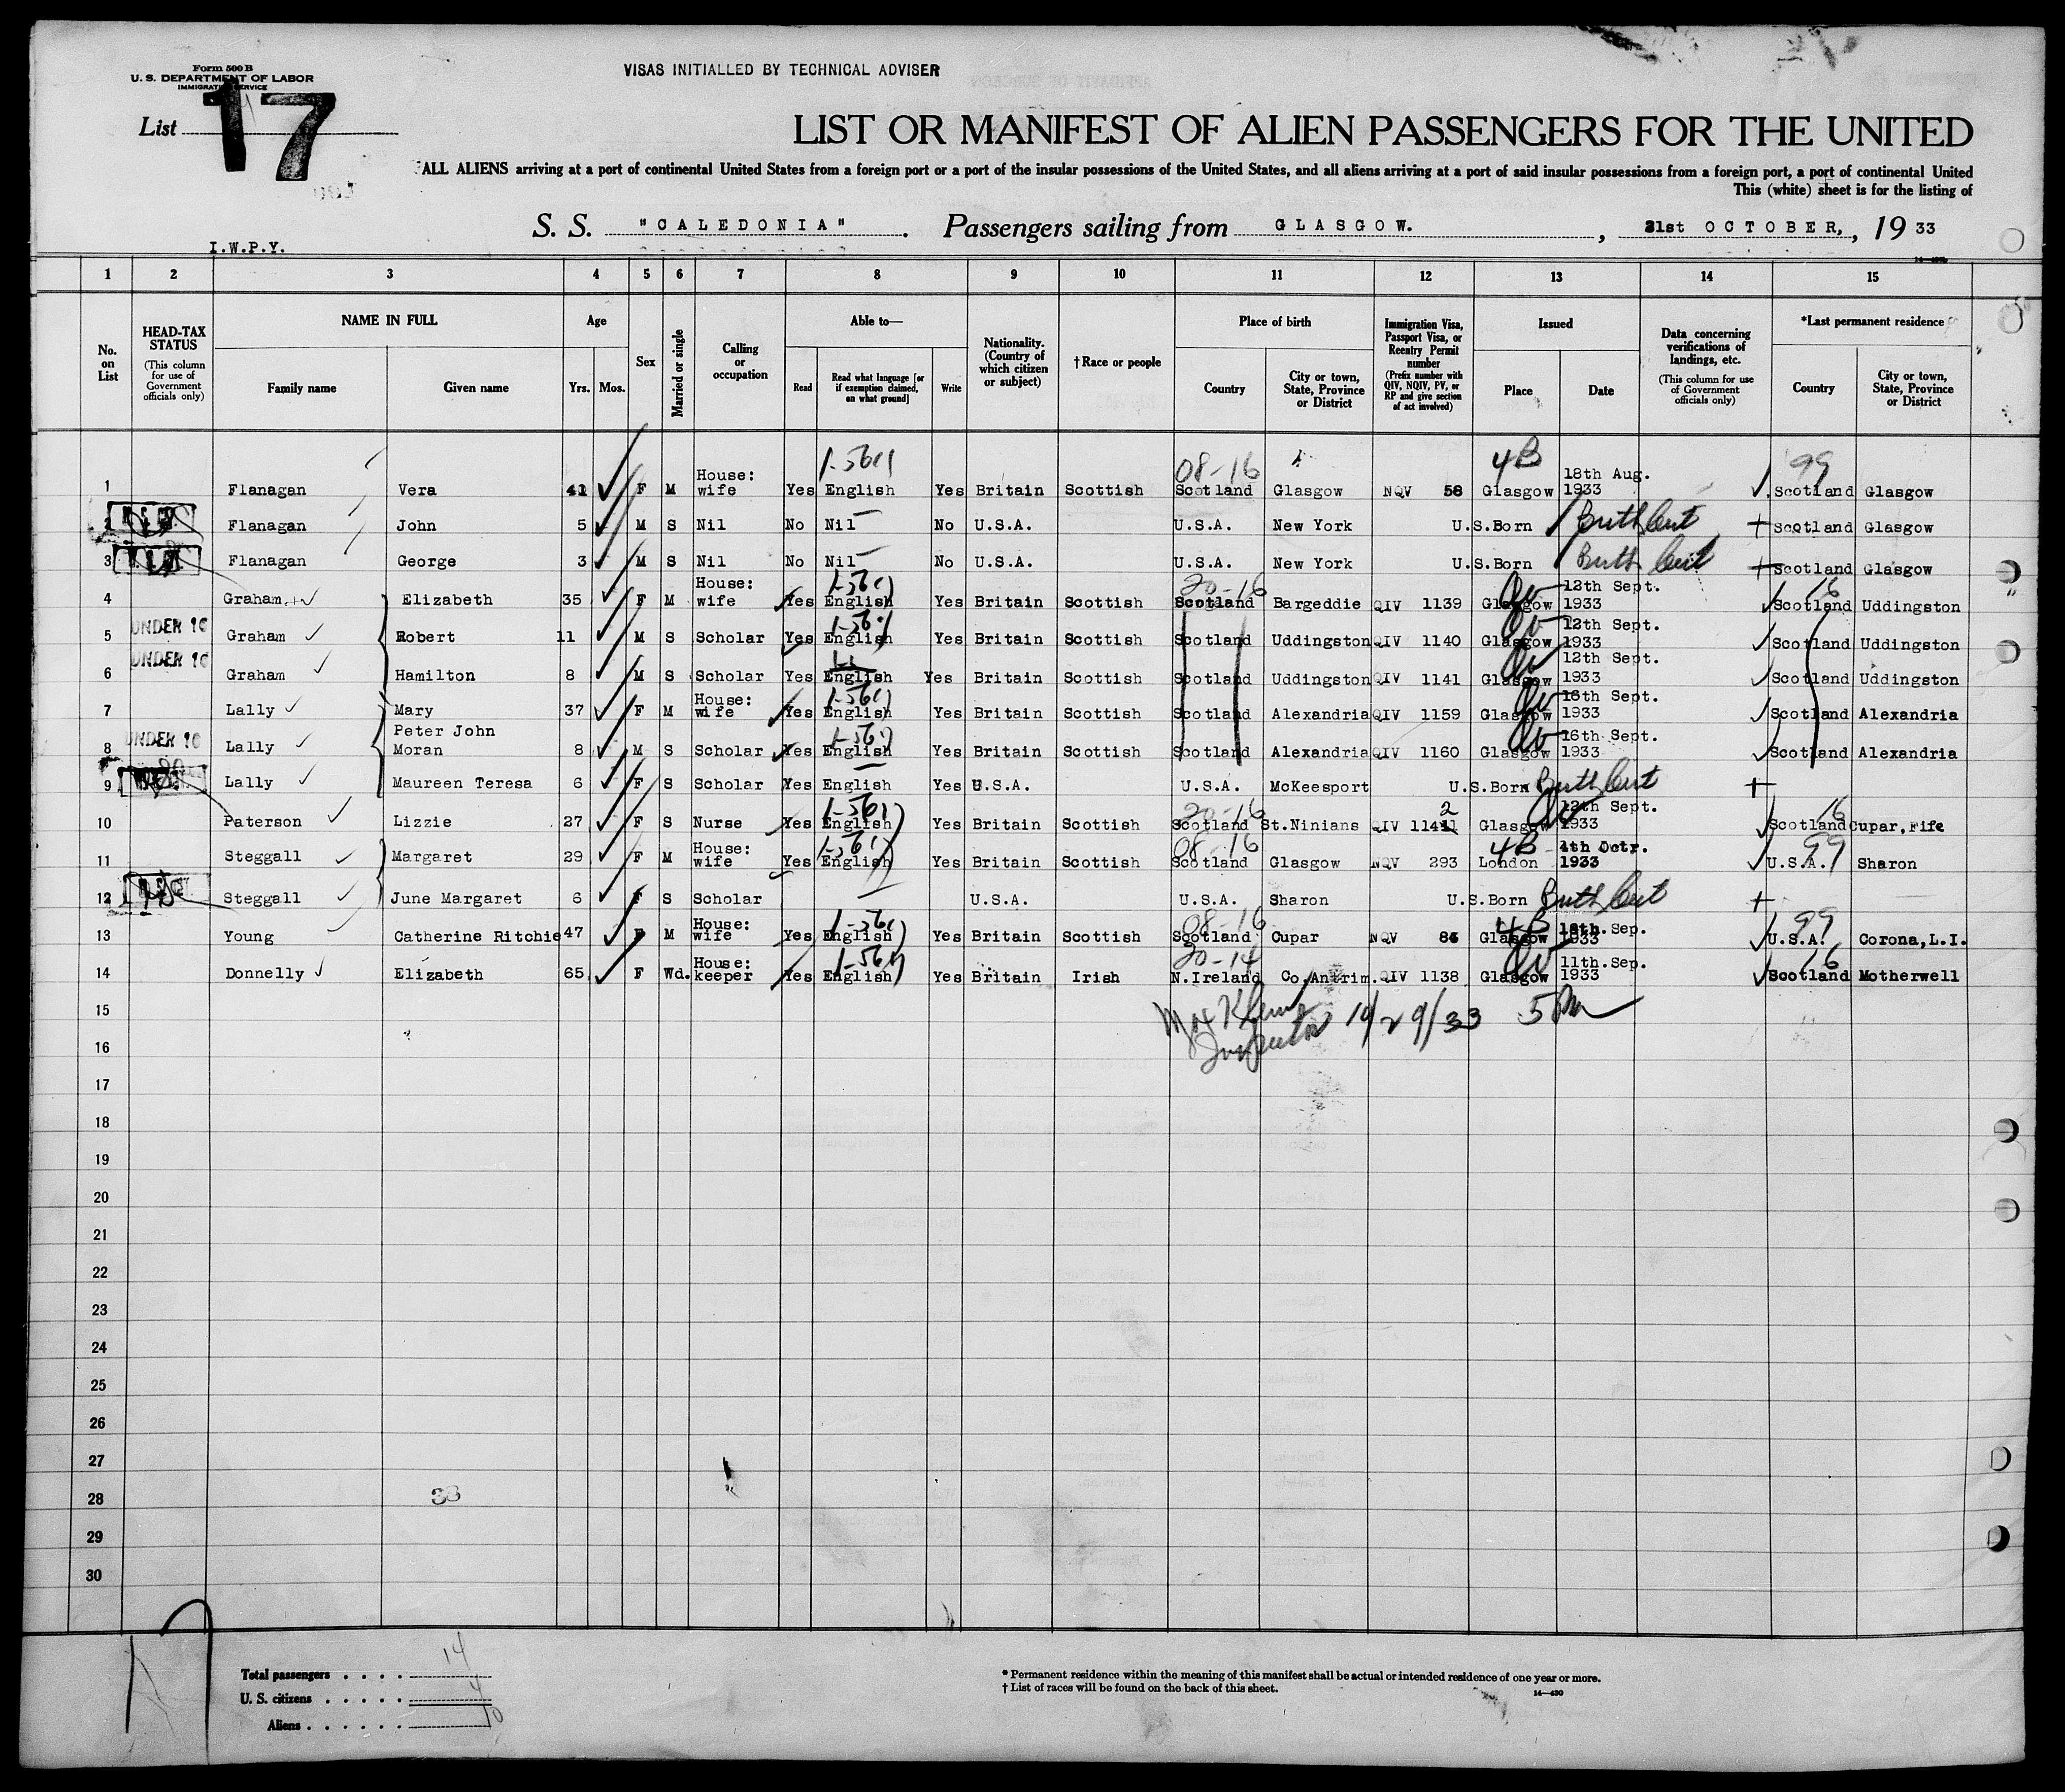 Form 500 B
U. S. DEPARTMENT OF LABOR
IMMIGRATION SERVICE
VISAS INITIALLED BY TECHNICAL ADVISER
List 17
LIST OR MANIFEST OF ALIEN PASSENGERS FOR THE UNITED
ALL ALIENS arriving at a port of continental United States from a foreign port or a port of the insular possessions of the United States, and all aliens arriving at a port of said insular possessions from a foreign port, a port of continental United
This (white) sheet is for the listing of
S. S. "CALEDONIA". Passengers sailing from GLASGOW. , 21st OCTOBER, , 19 33
I.W.P.Y.
1 2 3 4 5 6 7 8 9 10 11 12 13 14 15
No. on List
HEAD-TAX STATUS (This column for use of Government officials only)
NAME IN FULL
Family name Given name
Age
Yrs. Mos.
Sex
Married or single
Calling or occupation
Able to—
Read Read what language [or if exemption claimed, on what ground] Write
Nationality. (Country of which citizen or subject)
†Race or people
Place of birth
Country City or town, State, Province or District
Immigration Visa, Passport Visa, or Reentry Permit number (Prefix number with QIV, NQIV, PV, or RP and give section of act involved)
Issued
Place Date
Data concerning verifications of landings, etc. (This column for use of Government officials only)
*Last permanent residence
Country City or town, State, Province or District
1-5611 08-16 4B 99
1 Flanagan Vera 41 F M House: wife Yes English Yes Britain Scottish Scotland Glasgow NQV 58 Glasgow 18th Aug. 1933 Scotland Glasgow
2 Flanagan John 5 M S Nil No Nil No U.S.A. U.S.A. New York U.S.Born Birth Cert Scotland Glasgow
3 Flanagan George 3 M S Nil No Nil No U.S.A. U.S.A. New York U.S.Born Birth Cert Scotland Glasgow
20-16 16
4 Graham Elizabeth 35 F M House: wife Yes English Yes Britain Scottish Scotland Bargeddie QIV 1139 Glasgow 12th Sept. 1933 Scotland Uddingston
UNDER 16
5 Graham Robert 11 M S Scholar Yes English Yes Britain Scottish Scotland Uddingston QIV 1140 Glasgow 12th Sept. 1933 Scotland Uddingston
UNDER 16
6 Graham Hamilton 8 M S Scholar Yes English Yes Britain Scottish Scotland Uddingston QIV 1141 Glasgow 12th Sept. 1933 Scotland Uddingston
7 Lally Mary 37 F M House: wife Yes English Yes Britain Scottish Scotland Alexandria QIV 1159 Glasgow 16th Sept. 1933 Scotland Alexandria
UNDER 16
8 Lally Peter John Moran 8 M S Scholar Yes English Yes Britain Scottish Scotland Alexandria QIV 1160 Glasgow 16th Sept. 1933 Scotland Alexandria
9 Lally Maureen Teresa 6 F S Scholar Yes English Yes U.S.A. U.S.A. McKeesport U.S.Born Birth Cert
20-16 2 16
10 Paterson Lizzie 27 F S Nurse Yes English Yes Britain Scottish Scotland St.Ninians QIV 1141 Glasgow 12th Sept. 1933 Scotland Cupar, Fife
08-16 4B 99
11 Steggall Margaret 29 F M House: wife Yes English Yes Britain Scottish Scotland Glasgow NQV 293 London 4th Octr. 1933 U.S.A. Sharon
12 Steggall June Margaret 6 F S Scholar U.S.A. U.S.A. Sharon U.S.Born Birth Cert
08-16 4B 99
13 Young Catherine Ritchie 47 F M House: wife Yes English Yes Britain Scottish Scotland Cupar NQV 84 Glasgow 18th.Sep. 1933 U.S.A. Corona, L.I.
20-14 16
14 Donnelly Elizabeth 65 F Wd. House: keeper Yes English Yes Britain Irish N.Ireland Co.Antrim. QIV 1138 Glasgow 11th.Sep. 1933 Scotland Motherwell
15 Inspector 10/29/33
16
17
18
19
20
21
22
23
24
25
26
27
28
29
30
33
Total passengers . . . . 14
U. S. citizens . . . . . 4
Aliens . . . . . . 10
* Permanent residence within the meaning of this manifest shall be actual or intended residence of one year or more.
† List of races will be found on the back of this sheet.
14—430